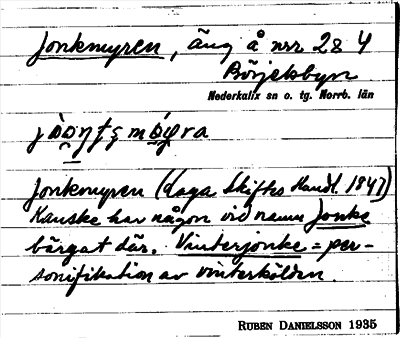 Jonkmyren, äng å nrr 28 4
Börjelsbyn
Nederkalix sn o. tg. Norrb. län
Jonkmyren (Laga Skiftes Handl. 1847)
Kanske har någon vid namn Jonke
bärgat där. Vinterjonke = per-
sonifikation av vinterkölden.
RUBEN DANIELSSON 1935